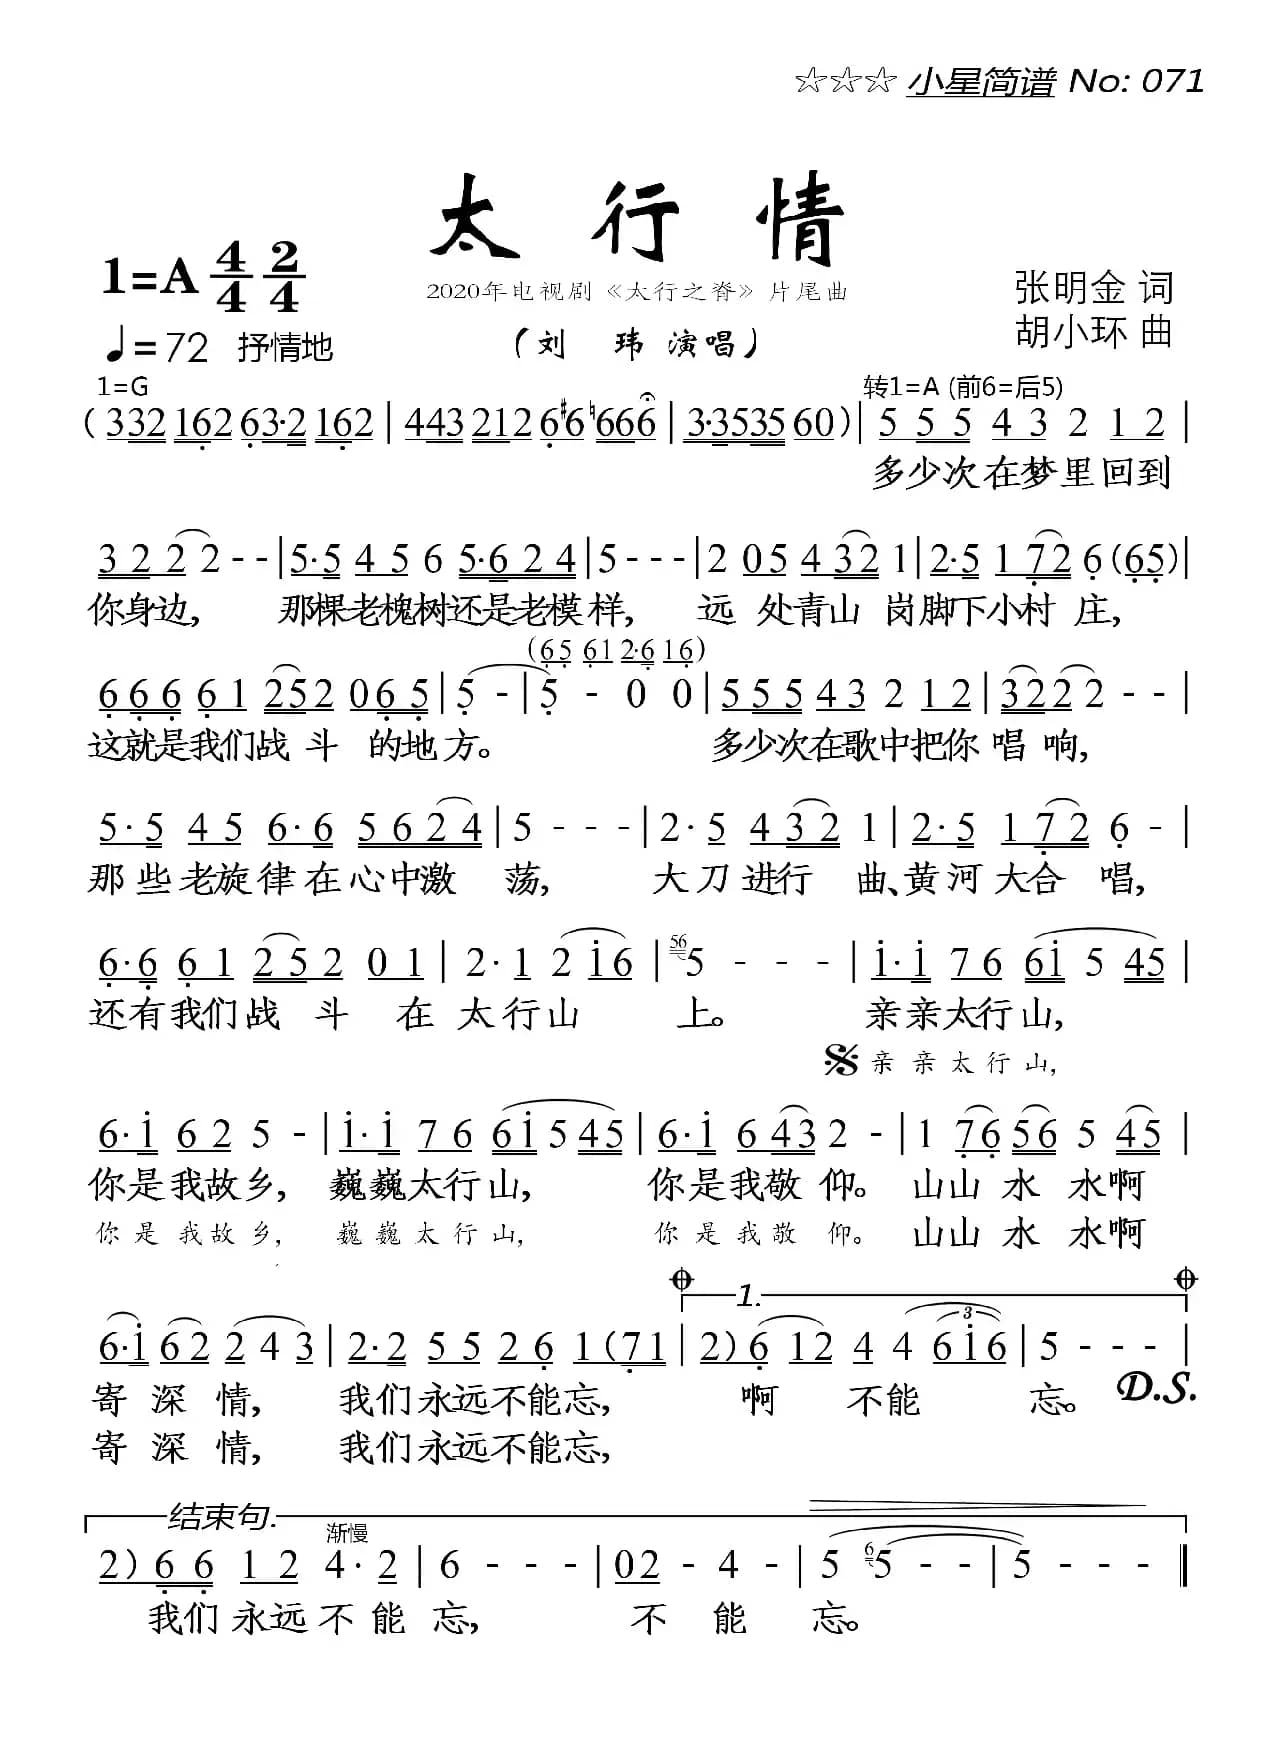 ☆☆☆ 小星简谱 No: 071
太行情
1=A 4/4 2/4
2020年电视剧《太行之脊》片尾曲
张明金 词
♩=72 抒情地
（刘 玮 演唱）
胡小环 曲
1=G 转1=A (前6=后5)
(332 162 63·2 162 | 443 212 6#6 ♮666 | 3·3535 60) | 5 5 5 4 3 2 1 2 |
多少次在梦里回到
3 2 2 2 - - | 5·5 4 5 6 5·6 2 4 | 5 - - - | 2 05 4 32 1 | 2·5 1 72 6 (65) |
你身边, 那棵老槐树还是老模样, 远 处青山 岗脚下小村 庄,
(65 61 2·6 16)
6 6 6 6 1 252 0 6 5 | 5 - | 5 - 0 0 | 555 43 2 12 | 3222 - - |
这就是我们战 斗 的地方。 多少次在歌中把你 唱 响,
5·5 4 5 6·6 5 6 2 4 | 5 - - - | 2·5 4 32 1 | 2·5 1 72 6 - |
那些老旋律在心中激 荡, 大刀进行 曲、黄河大合 唱,
6·6 6 1 2 5 2 0 1 | 2·1 2 i6 | 56 5 - - - | i·i 76 6i 5 45 |
还有我们战 斗 在 太行山 上。 亲亲太行山,
亲亲太行山,
6·i 6 2 5 - | i·i 7 6 6i 5 45 | 6·i 6 43 2 - | 1 76 56 5 45 |
你是我故乡, 巍巍太行山, 你是我敬仰。 山山水 水啊
你是我故乡, 巍巍太行山, 你是我敬仰。 山山水 水啊
1.
6·i 62 24 3 | 2·2 5 5 2 6 1 (71 | 2) 6 12 4 4 6i6 3 | 5 - - - |
寄深情, 我们永远不能忘, 啊 不能 忘。 D.S.
寄深情, 我们永远不能忘,
结束句.
渐慢
2) 6 6 1 2 4·2 | 6 - - - | 02 - 4 - | 5 6 5 - - | 5 - - - ‖
我们永远不能忘, 不 能 忘。